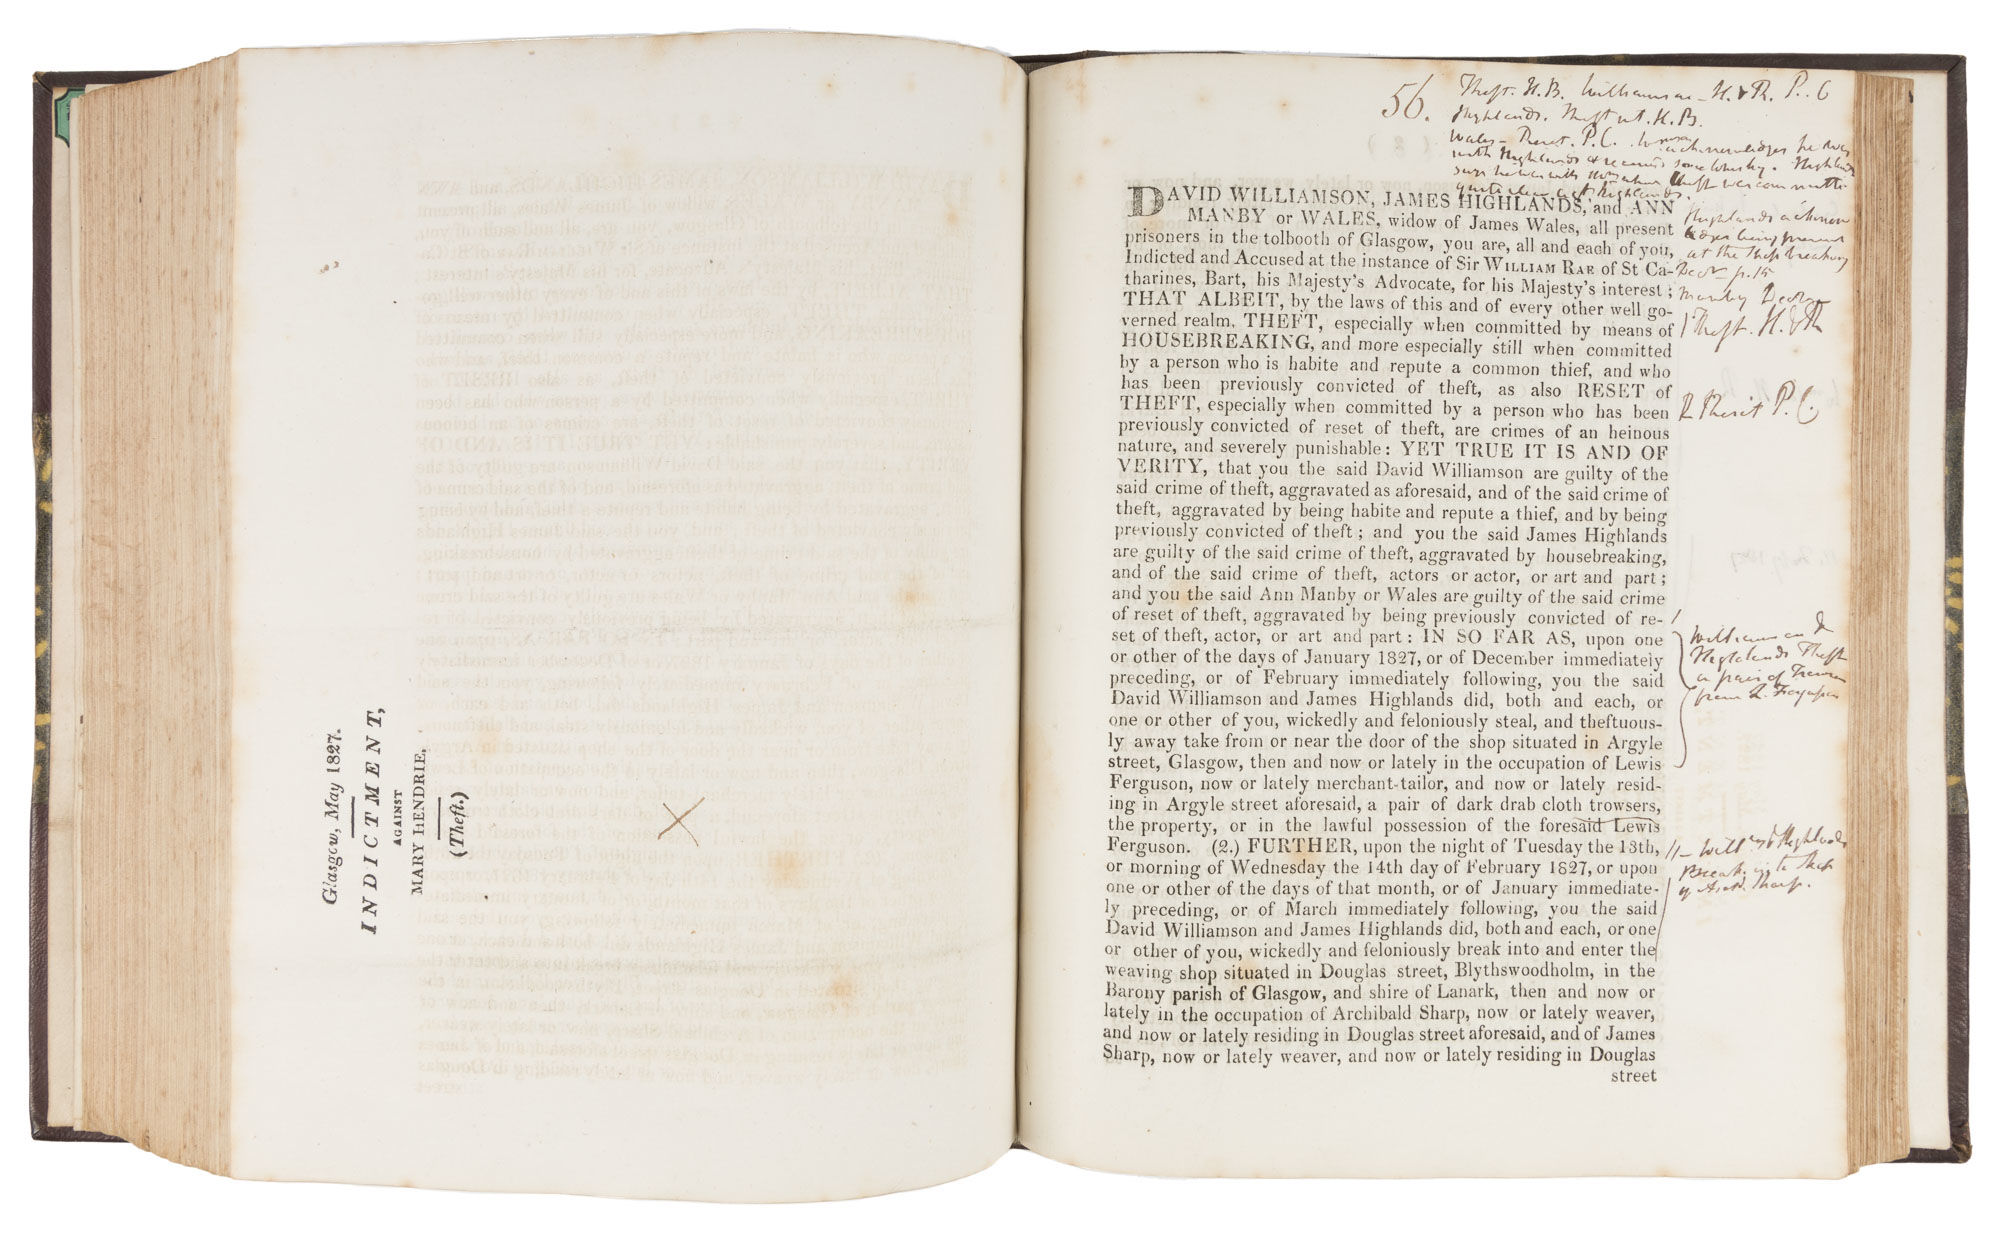 Glasgow, May 1827.
INDICTMENT,
AGAINST
MARY HENDRIE.
(Theft.)
56.
Theft. H.B. Williamson - H. & R. P. C
Highlands. Theft art. H.B.
Wales - Reset. P.C. acknowledges he was
with Highlands & received some Whisky. Highlands
says he was with
quite clear agt Highlands.
DAVID WILLIAMSON, JAMES HIGHLANDS, and ANN
MANBY or WALES, widow of James Wales, all present
prisoners in the tolbooth of Glasgow, you are, all and each of you,
Indicted and Accused at the instance of Sir WILLIAM RAE of St Ca-
tharines, Bart, his Majesty's Advocate, for his Majesty's interest;
THAT ALBEIT, by the laws of this and of every other well go-
verned realm, THEFT, especially when committed by means of
HOUSEBREAKING, and more especially still when committed
by a person who is habite and repute a common thief, and who
has been previously convicted of theft, as also RESET of
THEFT, especially when committed by a person who has been
previously convicted of reset of theft, are crimes of an heinous
nature, and severely punishable: YET TRUE IT IS AND OF
VERITY, that you the said David Williamson are guilty of the
said crime of theft, aggravated as aforesaid, and of the said crime of
theft, aggravated by being habite and repute a thief, and by being
previously convicted of theft; and you the said James Highlands
are guilty of the said crime of theft, aggravated by housebreaking,
and of the said crime of theft, actors or actor, or art and part;
and you the said Ann Manby or Wales are guilty of the said crime
of reset of theft, aggravated by being previously convicted of re-
set of theft, actor, or art and part: IN SO FAR AS, upon one
or other of the days of January 1827, or of December immediately
preceding, or of February immediately following, you the said
David Williamson and James Highlands did, both and each, or
one or other of you, wickedly and feloniously steal, and theftuous-
ly away take from or near the door of the shop situated in Argyle
street, Glasgow, then and now or lately in the occupation of Lewis
Ferguson, now or lately merchant-tailor, and now or lately resid-
ing in Argyle street aforesaid, a pair of dark drab cloth trowsers,
the property, or in the lawful possession of the foresaid Lewis
Ferguson. (2.) FURTHER, upon the night of Tuesday the 13th,
or morning of Wednesday the 14th day of February 1827, or upon
one or other of the days of that month, or of January immediate-
ly preceding, or of March immediately following, you the said
David Williamson and James Highlands did, both and each, or one
or other of you, wickedly and feloniously break into and enter the
weaving shop situated in Douglas street, Blythswoodholm, in the
Barony parish of Glasgow, and shire of Lanark, then and now or
lately in the occupation of Archibald Sharp, now or lately weaver,
and now or lately residing in Douglas street aforesaid, and of James
Sharp, now or lately weaver, and now or lately residing in Douglas
street
Highlands acknow
ledges being present
at the Shop breaking
p. 15
Manby
Theft. H. & R
Reset P. C.
Williamson &
Highlands Theft
a pair of
from L. Ferguson
Will & Highlands
Break into Shop
of Archd. Sharp.